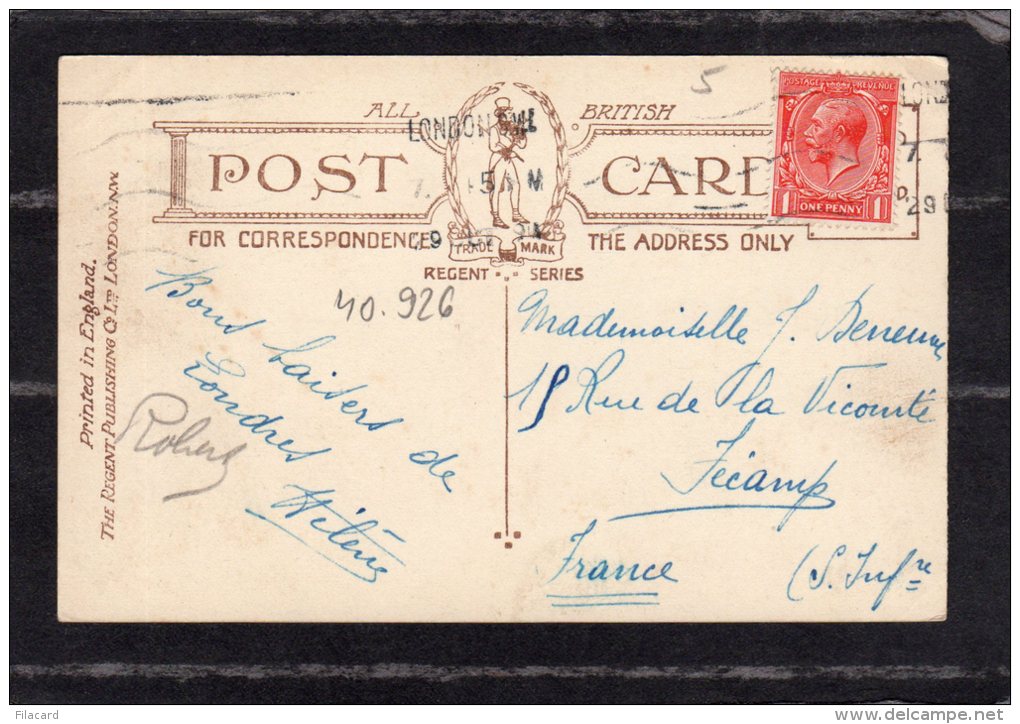 ALL BRITISH
POST CARD
FOR CORRESPONDENCE THE ADDRESS ONLY
TRADE MARK
REGENT SERIES
POSTAGE REVENUE
1 ONE PENNY 1
LONDON
5
40.926
Printed in England.
THE REGENT PUBLISHING Co LTD LONDON. N.W.
Bons baisers de
Londres
Hélène
Robert
Mademoiselle J.
18 Rue de la Vicomté
Fécamp
France (S. Infre
Filacard
delcampe.net